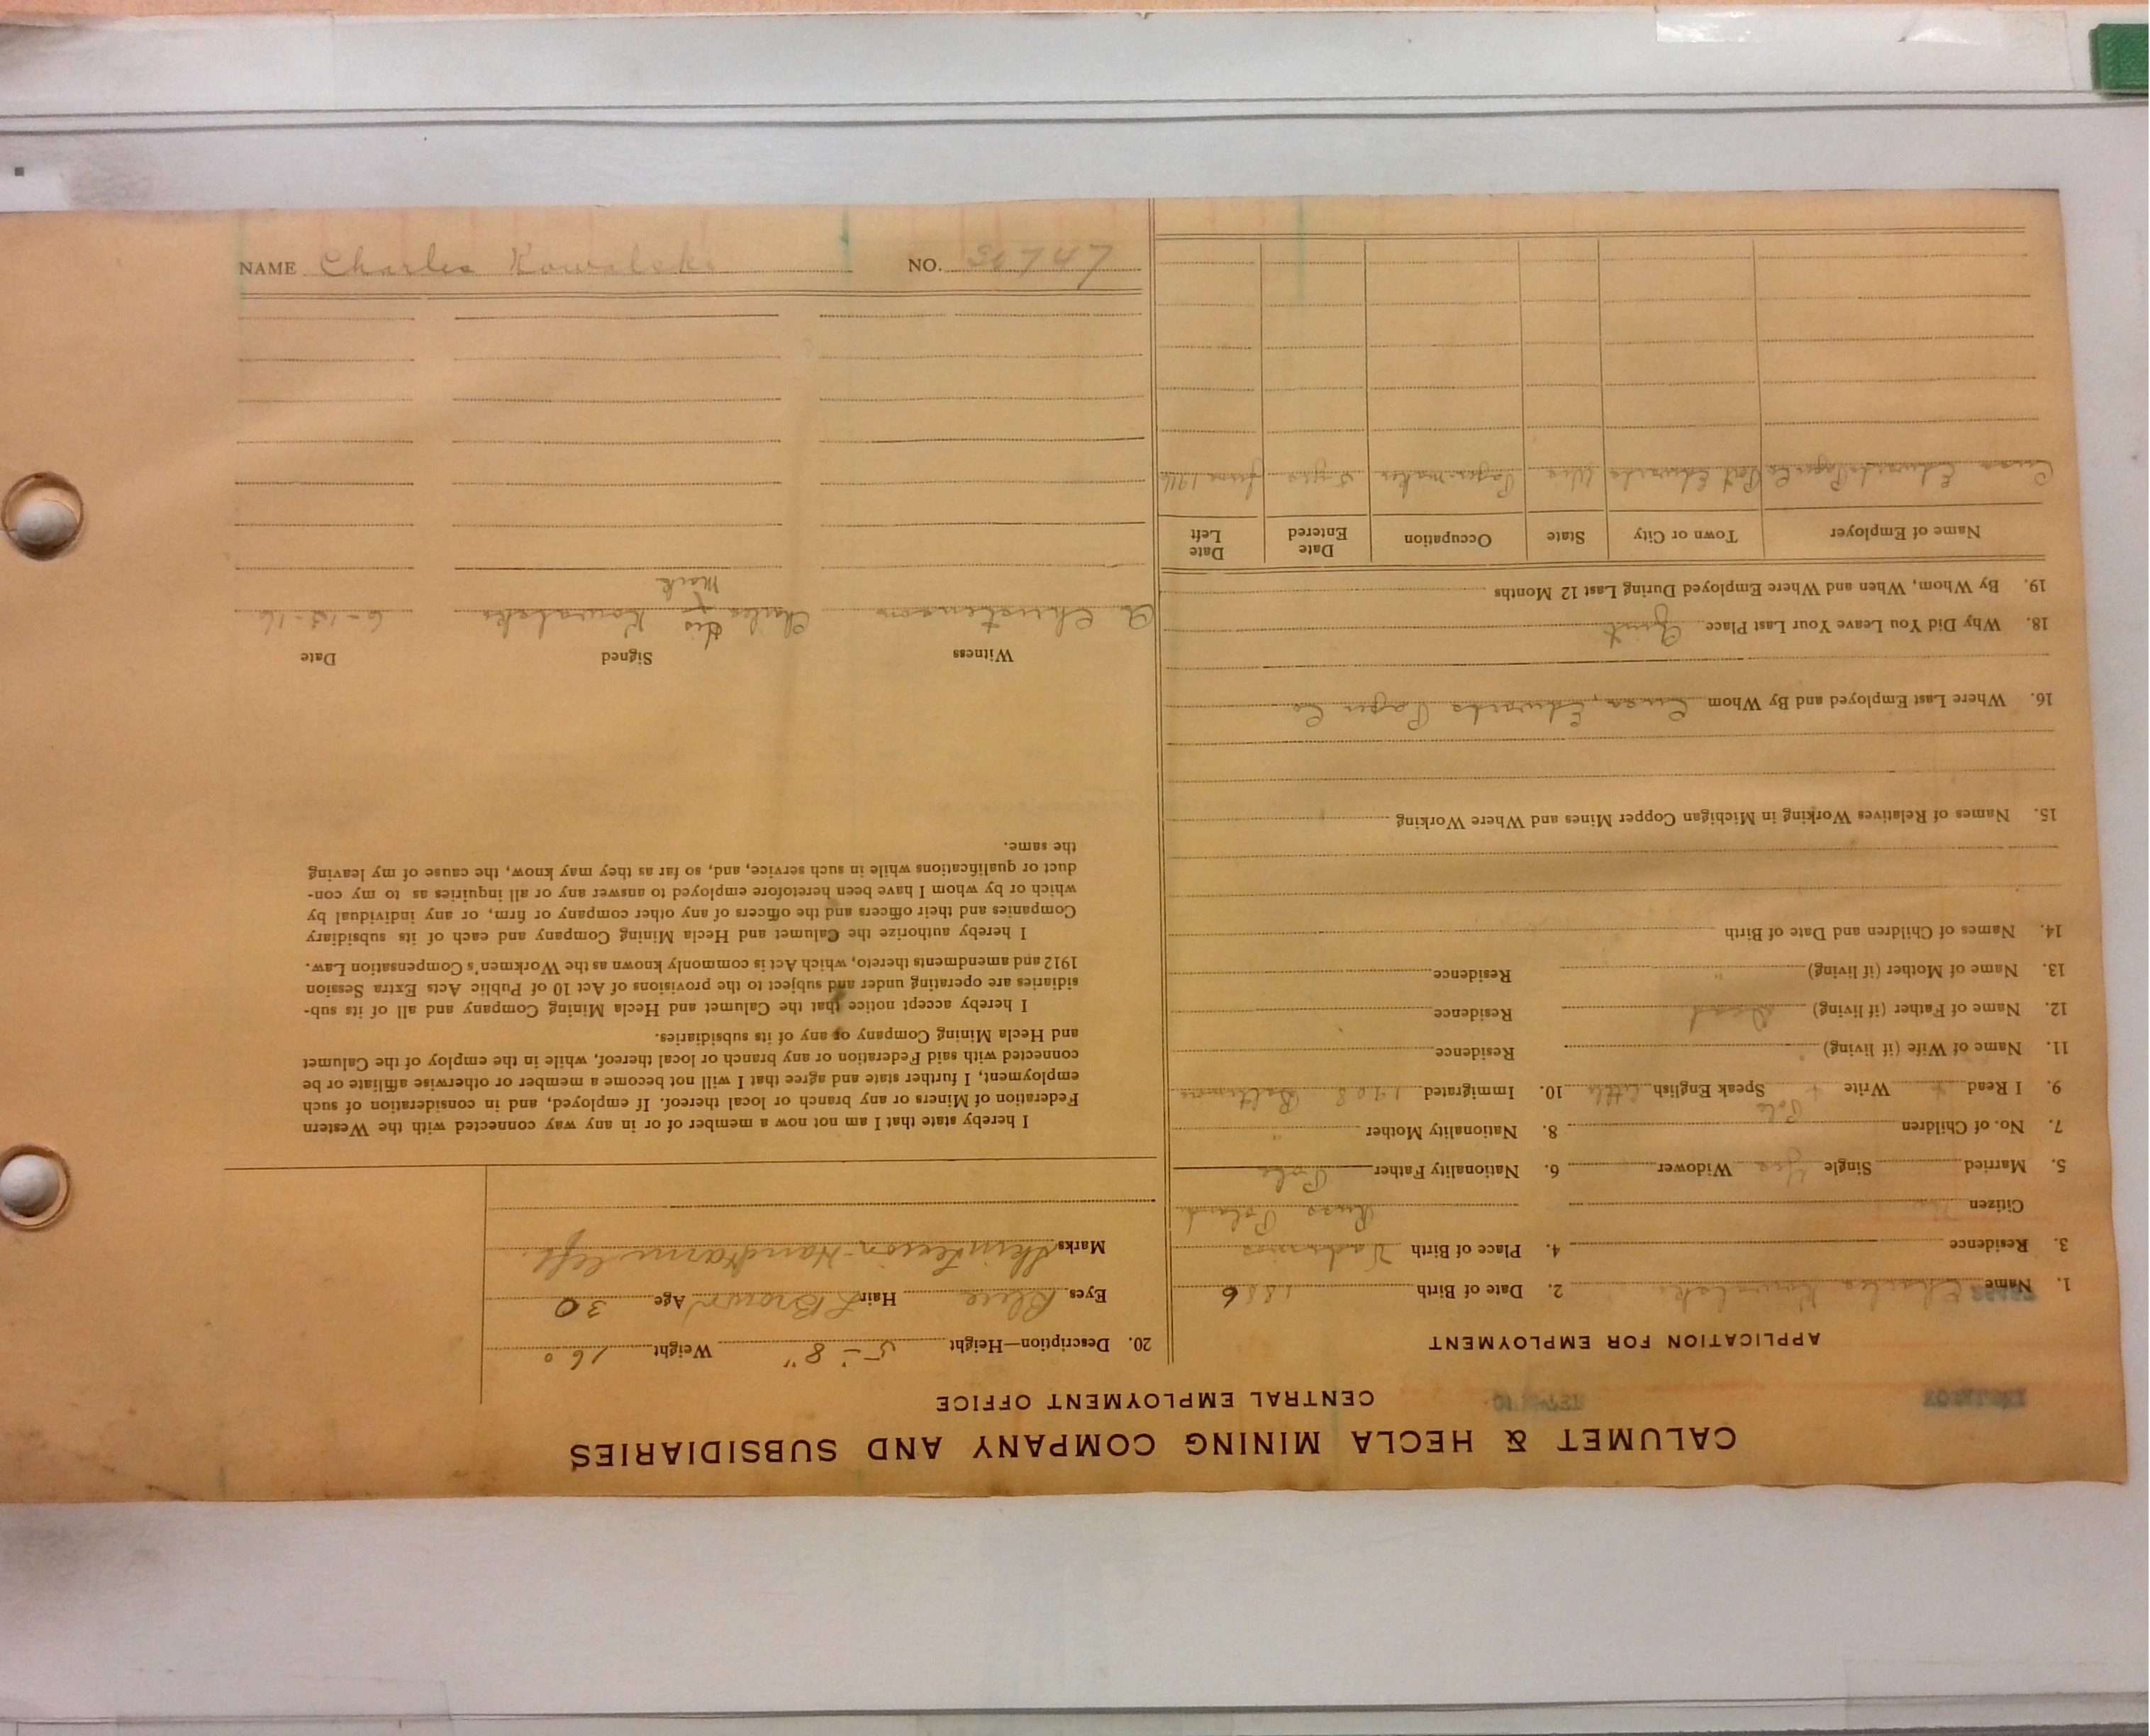 CALUMET & HECLA MINING COMPANY AND SUBSIDIARIES
CENTRAL EMPLOYMENT OFFICE
APPLICATION FOR EMPLOYMENT
1. Name Charles Kowaleke 2. Date of Birth 1886
3. Residence 4. Place of Birth
Citizen Russ Poland
5. Married Single Yes Widower 6. Nationality Father Pole
7. No. of Children 8. Nationality Mother "
Pole
9. I Read + Write + Speak English little 10. Immigrated 1908 Baltimore
11. Name of Wife (if living) Residence
12. Name of Father (if living) Dead Residence
13. Name of Mother (if living) " Residence
14. Names of Children and Date of Birth
15. Names of Relatives Working in Michigan Copper Mines and Where Working
16. Where Last Employed and By Whom Edwards Paper Co
18. Why Did You Leave Your Last Place. Quit
19. By Whom, When and Where Employed During Last 12 Months
Name of Employer Town or City State Occupation Date Entered Date Left
Edwards Paper Co Port Edwards Wis Paper-maker 5 yrs June 1916
20. Description—Height 5-8" Weight 160
Eyes Blue Hair L Brown Age 30
Marks Skin Lesion-Hand & arm left.
I hereby state that I am not now a member of or in any way connected with the Western
Federation of Miners or any branch or local thereof. If employed, and in consideration of such
employment, I further state and agree that I will not become a member or otherwise affiliate or be
connected with said Federation or any branch or local thereof, while in the employ of the Calumet
and Hecla Mining Company or any of its subsidiaries.
I hereby accept notice that the Calumet and Hecla Mining Company and all of its sub-
sidiaries are operating under and subject to the provisions of Act 10 of Public Acts Extra Session
1912 and amendments thereto, which Act is commonly known as the Workmen's Compensation Law.
I hereby authorize the Calumet and Hecla Mining Company and each of its subsidiary
Companies and their officers and the officers of any other company or firm, or any individual by
which or by whom I have been heretofore employed to answer any or all inquiries as to my con-
duct or qualifications while in such service, and, so far as they may know, the cause of my leaving
the same.
Witness Signed Date
his
A. Christenson Charles x Kowaleke 6-15-16
Mark
NAME Charles Kowaleke NO. 30747